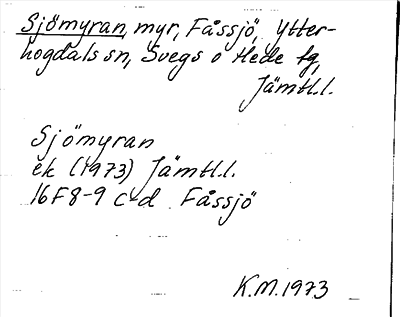 Sjömyran, myr, Fåssjö, Ytter-
hogdals sn, Svegs o Hede tg,
Jämtl.l.
Sjömyran
ek (1973) Jämtl.l.
16F8-9 c-d Fåssjö
K.M.1973